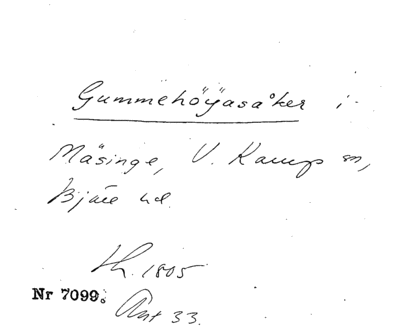 Gummehöÿasåker i
Mäsinge, V. Karup sn,
Bjäre hd.
th. 1805
Nr 7099.
Ant 33.